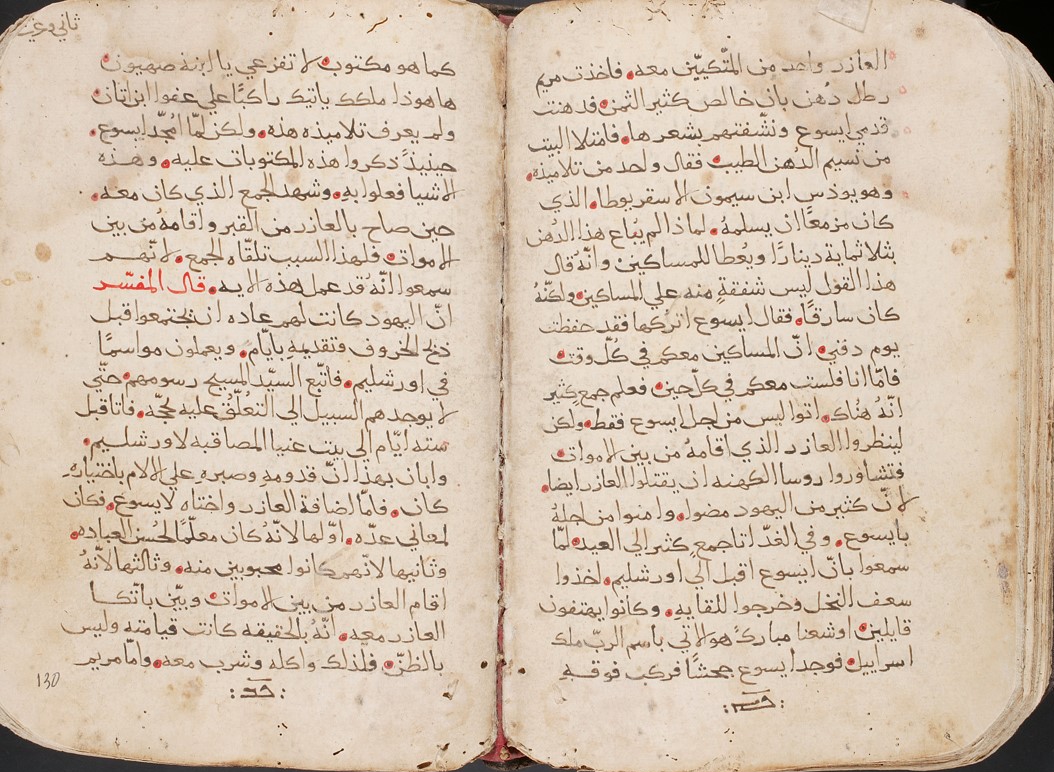 العازر واحد من المتّكيّين معه. فاخذت مريم
رطل دُهن بان خالص كثير الثمن. فدهنت
قدمي ايسوع ونشّفتهم بشعرها. فامتلا البيت
من نسيم الدُهن الطيب. فقال واحد من تلاميذه.
وهو يوذس ابن سيمون الاسقريوطا. الذي
كان مزمعًا ان يسلمهُ. لماذا لم يُباع هذا الدُهن
بثلاثمايه دينارًا ويُعطا للمساكين. وانّهُ قال
هذا القول ليس شفقةٍ منه علي المساكين. ولكنّهُ
كان سارقًا. فقال ايسوع اتركها فقد حفظت
يوم دفني. انّ المساكين معكم في كلّ وقت.
فامّا انا فلست معكم في كلّ حين. فعلم جمع كثير
انّهُ هُناك. اتوا ليس من اجل ايسوع فقط. ولكن
لينظروا العازر الذي اقامهُ من بين الاموات.
فتشاوروا روسا الكهنه ان يقتلوا العازر ايضا.
لانّ كثير من اليهود مضوا. وامنوا من اجلهُ
بايسوع. وفي الغدّ اتا جمع كثير الي العيد. لمّا
سمعوا بانّ ايسوع اقبل الي اورشليم. اخذوا
سعف النخل وخرجوا للقايهِ. وكانوا يهتفون
قايلين. اوشعنا مباركٌ هو الاتي باسم الربّ ملك
اسراييل. فوجد ايسوع جحشًا فركب فوقهِ
ثاني وعشر
كما هو مكتوب. لا تفزعي يا ابنة صهيون.
ها هوذا ملكك ياتيك راكبًا علي عفوا ابن اتان
ولم يعرف تلاميذه هذه. ولكن لمّا مُجّد ايسوع.
حينيذ ذكروا هذه المكتوبات عليه. وهذه
الاشيا فعلوا به. وشهد الجمع الذي كان معه.
حين صاح بالعازر من القبر واقامهُ من بين
الاموات. فلهذا السبب تلقّاه الجمع. لانّهم
سمعوا انّهُ قد عمل هذه الايه. قال المفسّر
انّ اليهود كانت لهم عاده ان يجتمعوا قبل
ذبح الخروف وتقدمةِ بايّام. ويعملون مواسمًا
في اورشليم. فاتّبع السيّد المسيح رسومهم. حتّي
لا يوجدهم السبيل الي التعلُّق عليه بحجّه. فاتا قبل
سته ايّام الي بيت عنيا المصاقبه لاورشليم.
وابان بهذا انّ قدومهِ وصبرهِ علي الالام باختيارهِ
كان. فامّا اضافة العازر واختاه لايسوع. فكان
لمعاني عدّه. اوّلها لانّهُ كان معلّمًا لحُسن العباده.
وثانيها لانّهم كانوا محبوبين منه. وثالثها لانّهُ
اقام العازر من بين الاموات. وبيّن باتّكا
العازر معه. انّهُ بالحقيقه كانت قيامته وليس
بالظنّ. فلذلك واكله وشرب معه. وامّا مريم
130